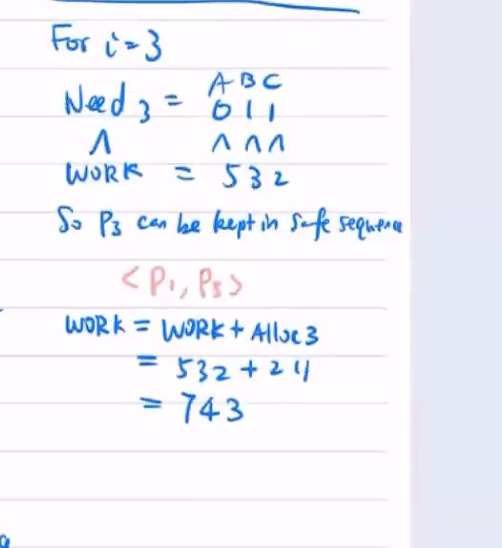 For i=3
A B C
Need 3 = 0 1 1
∧ ∧ ∧ ∧
WORK = 5 3 2
So P3 can be kept in safe sequence
<P1, P3>
WORK = WORK + Alloc 3
= 532 + 211
= 743